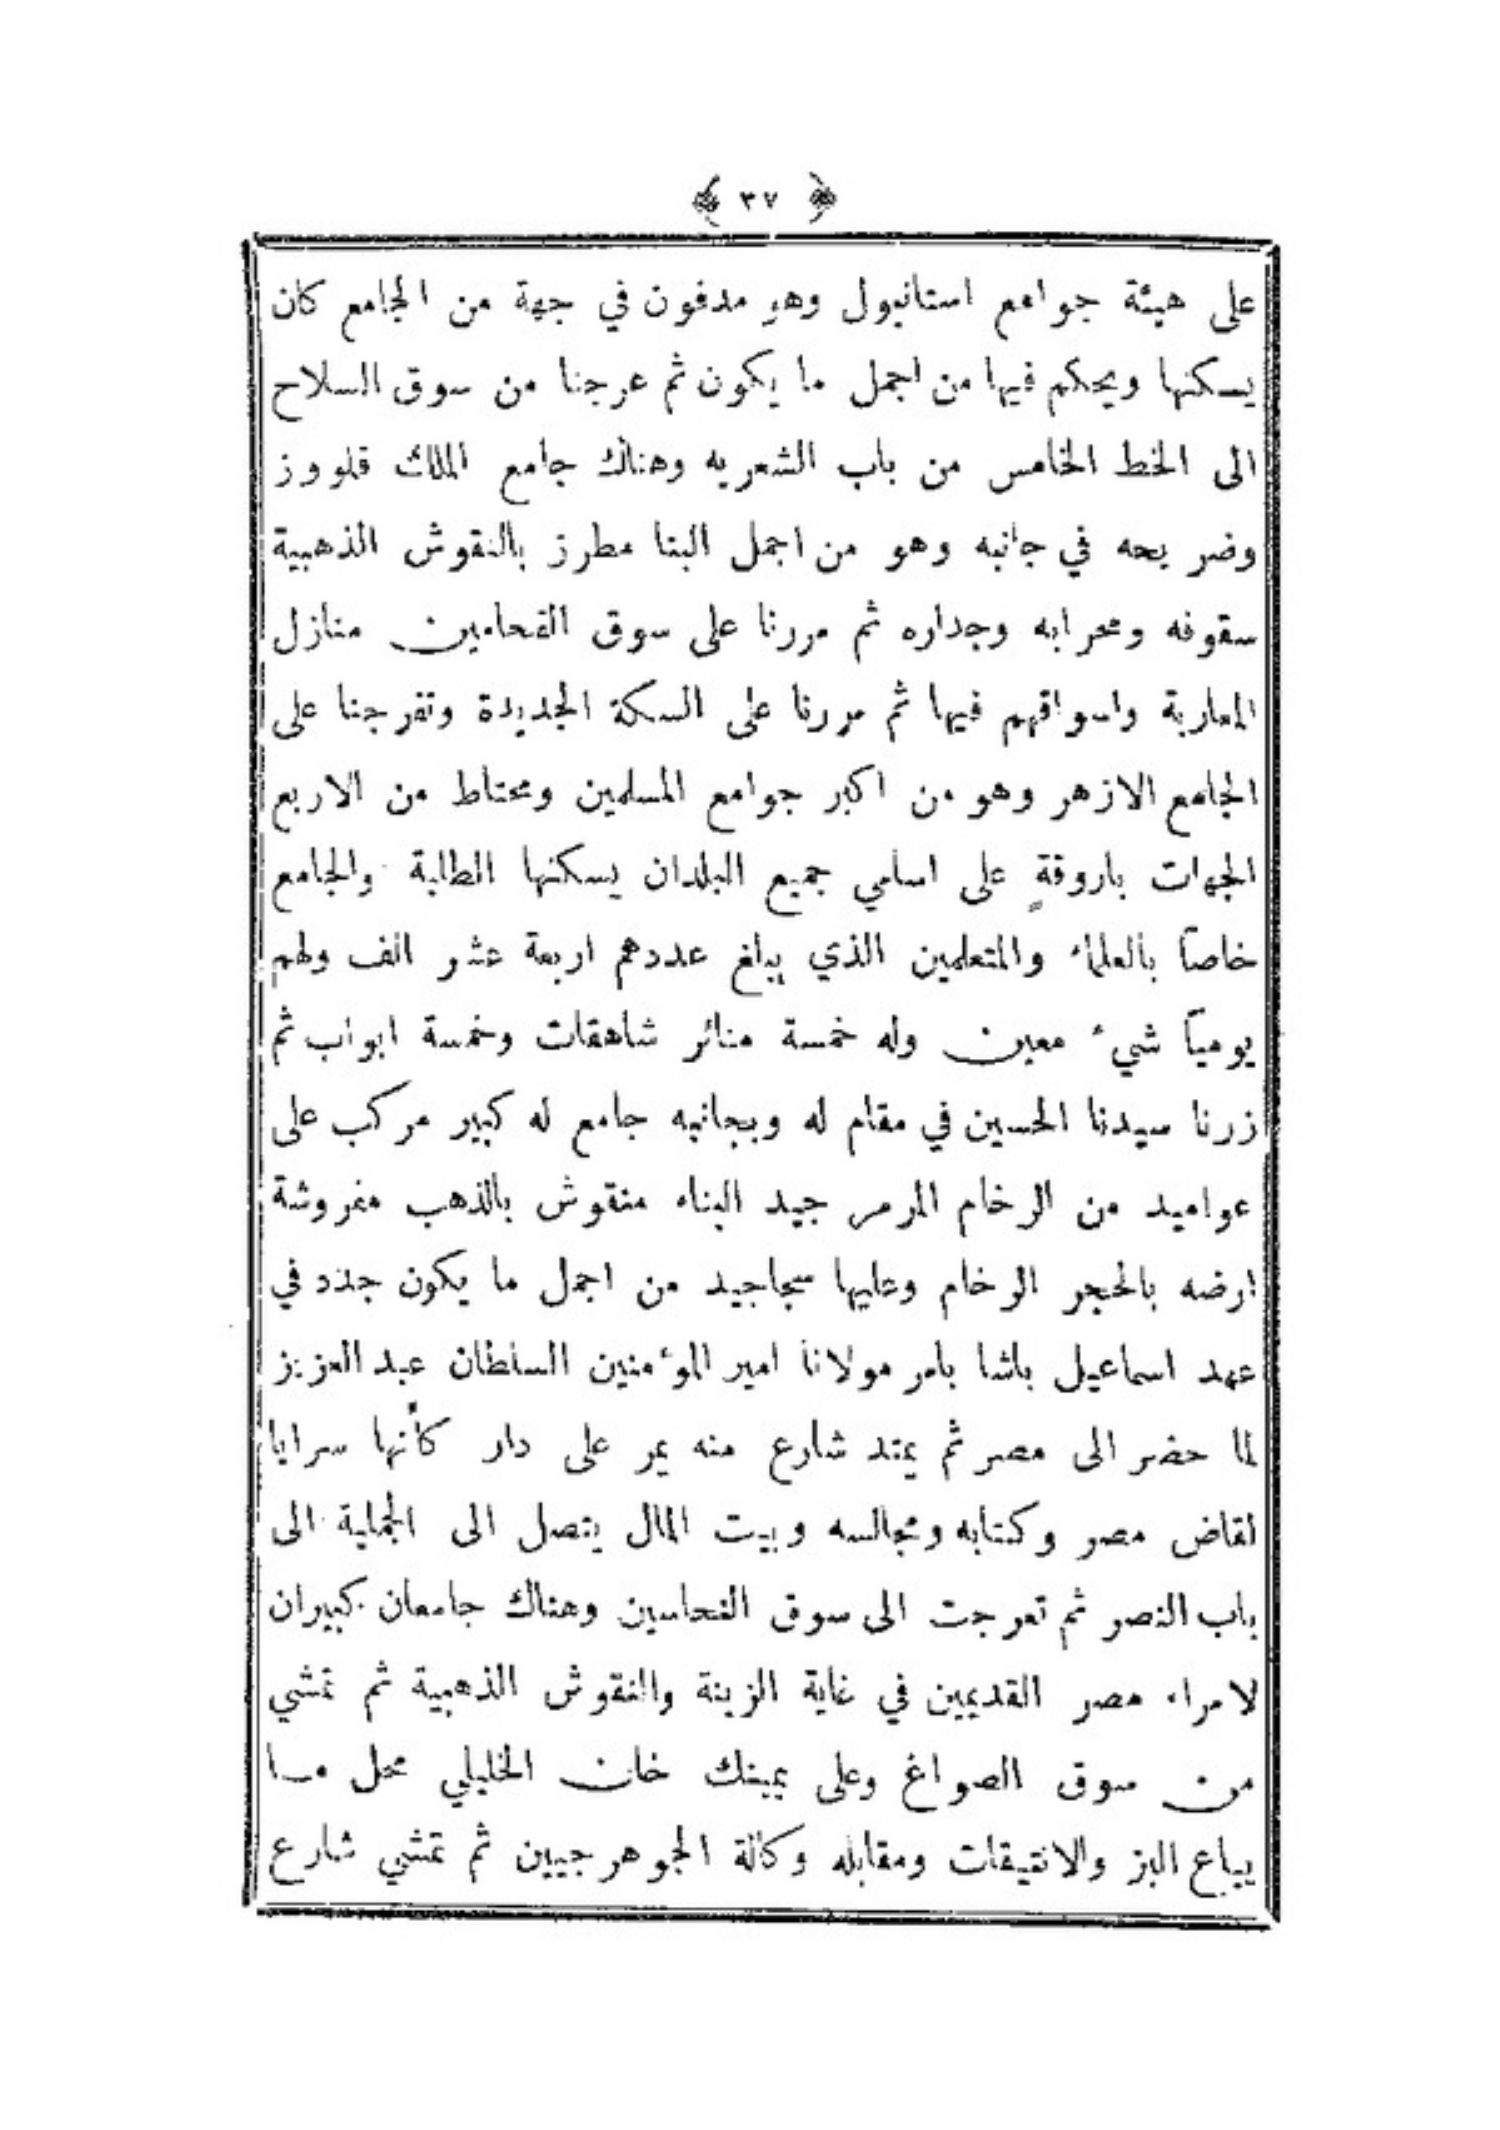 ﴿ ٣٧ ﴾
على هيئة جوامع استانبول وهو مدفون في جهة من الجامع كان
يسكنها ويحكم فيها من اجمل ما يكون ثم عرجنا من سوق السلاح
الى الخط الخامس من باب الشعريه وهناك جامع الملك قلووز
وضريحه في جانبه وهو من اجمل البنا مطرز بالنقوش الذهبية
سقوفه ومحرابه وجداره ثم مررنا على سوق الفحامين منازل
المغاربة واسواقهم فيها ثم مررنا على السكة الجديدة وتفرجنا على
الجامع الازهر وهو من اكبر جوامع المسلمين ومحتاط من الاربع
الجهات باروقةٍ على اسامي جميع البلدان يسكنها الطلبة والجامع
خاصاً بالعلماء والمتعلمين الذي يبلغ عددهم اربعة عشر الف ولهم
يومياً شيء معين وله خمسة منائر شاهقات وخمسة ابواب ثم
زرنا سيدنا الحسين في مقام له وبجانبه جامع له كبير مركب على
عواميد من الرخام المرمر جيد البناء منقوش بالذهب مفروشة
ارضه بالحجر الرخام وعليها سجاجيد من اجمل ما يكون جدد في
عهد اسماعيل باشا بامر مولانا امير المؤمنين السلطان عبد العزيز
لما حضر الى مصر ثم يمتد شارع منه يمر على دار كأنها سرايا
لقاض مصر وكتابه ومجالسه وبيت المال يتصل الى الجمالية الى
باب النصر ثم تعرجت الى سوق النحاسين وهناك جامعان كبيران
لامراء مصر القديمين في غاية الزينة والنقوش الذهبية ثم تمشي
من سوق الصواغ وعلى يمينك خان الخليلي محل ما
يباع البز والانتيقات ومقابله وكالة الجوهرجيين ثم تمشي شارع